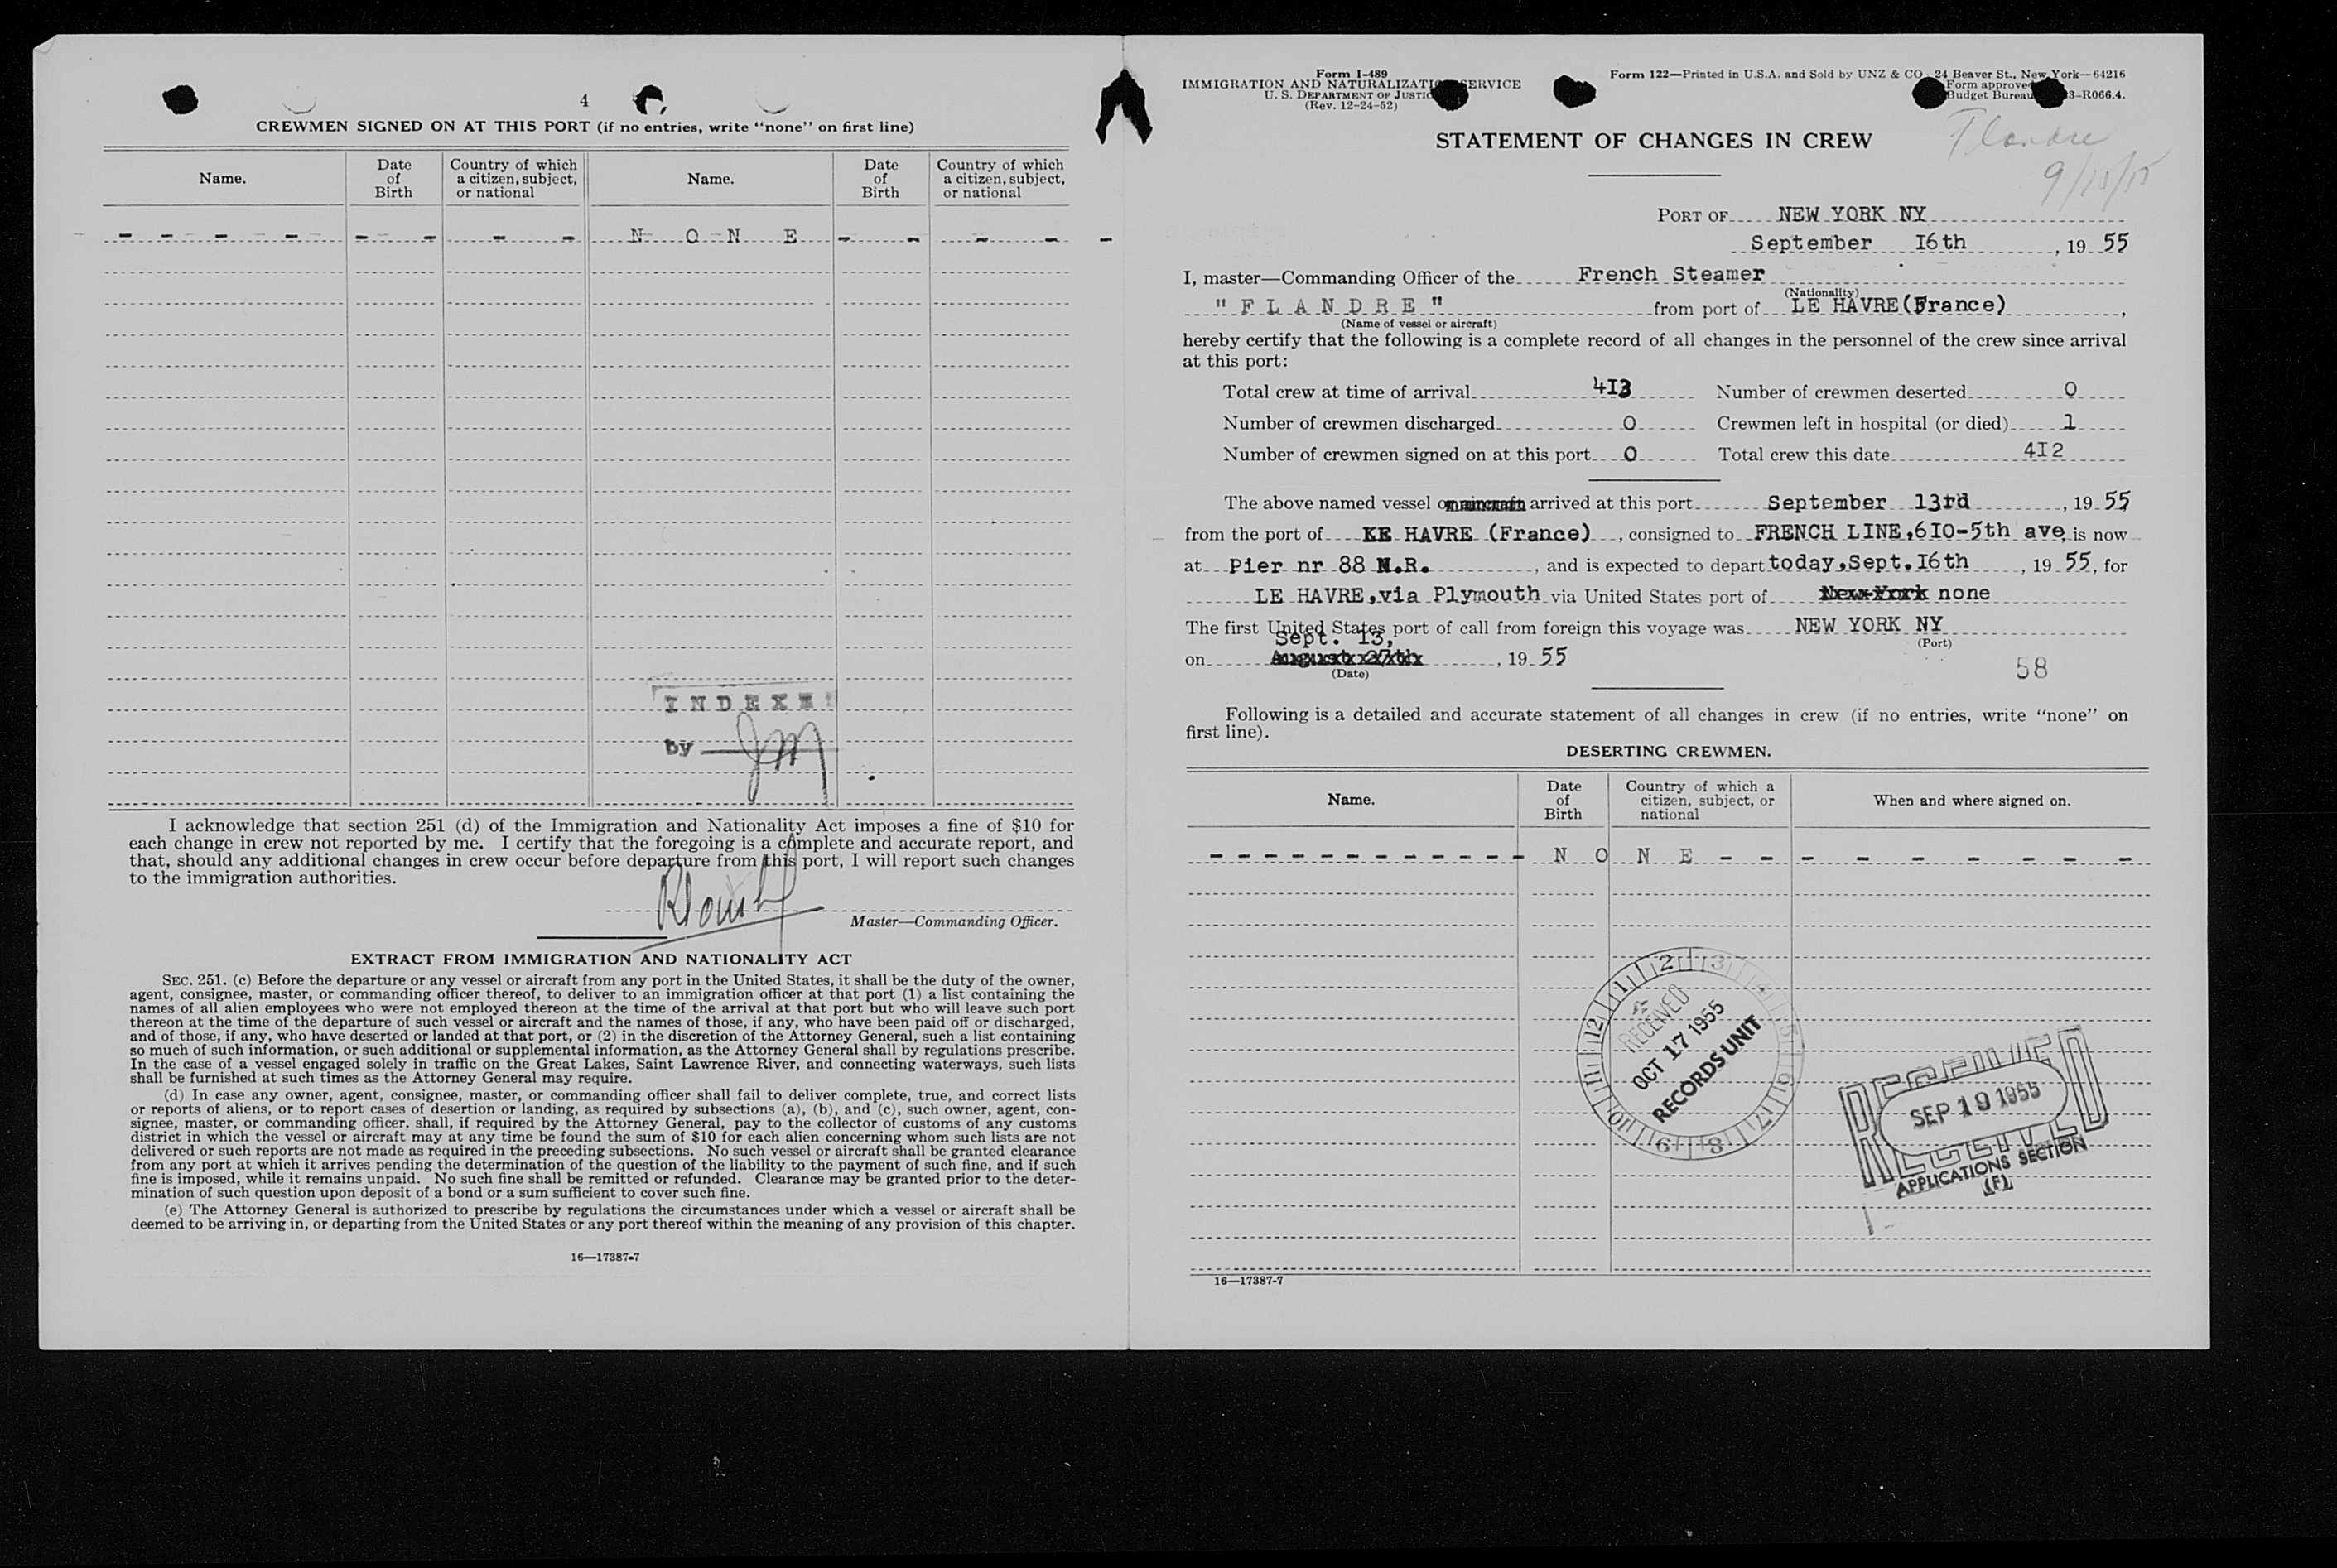 4
CREWMEN SIGNED ON AT THIS PORT (if no entries, write “none” on first line)
Name. Date of Birth Country of which a citizen, subject, or national Name. Date of Birth Country of which a citizen, subject, or national
- - - - - - - - - N O N E - - - - -
INDEXE
by JM
I acknowledge that section 251 (d) of the Immigration and Nationality Act imposes a fine of $10 for
each change in crew not reported by me. I certify that the foregoing is a complete and accurate report, and
that, should any additional changes in crew occur before departure from this port, I will report such changes
to the immigration authorities.
Master—Commanding Officer.
EXTRACT FROM IMMIGRATION AND NATIONALITY ACT
SEC. 251. (c) Before the departure or any vessel or aircraft from any port in the United States, it shall be the duty of the owner,
agent, consignee, master, or commanding officer thereof, to deliver to an immigration officer at that port (1) a list containing the
names of all alien employees who were not employed thereon at the time of the arrival at that port but who will leave such port
thereon at the time of the departure of such vessel or aircraft and the names of those, if any, who have been paid off or discharged,
and of those, if any, who have deserted or landed at that port, or (2) in the discretion of the Attorney General, such a list containing
so much of such information, or such additional or supplemental information, as the Attorney General shall by regulations prescribe.
In the case of a vessel engaged solely in traffic on the Great Lakes, Saint Lawrence River, and connecting waterways, such lists
shall be furnished at such times as the Attorney General may require.
(d) In case any owner, agent, consignee, master, or commanding officer shall fail to deliver complete, true, and correct lists
or reports of aliens, or to report cases of desertion or landing, as required by subsections (a), (b), and (c), such owner, agent, con-
signee, master, or commanding officer. shall, if required by the Attorney General, pay to the collector of customs of any customs
district in which the vessel or aircraft may at any time be found the sum of $10 for each alien concerning whom such lists are not
delivered or such reports are not made as required in the preceding subsections. No such vessel or aircraft shall be granted clearance
from any port at which it arrives pending the determination of the question of the liability to the payment of such fine, and if such
fine is imposed, while it remains unpaid. No such fine shall be remitted or refunded. Clearance may be granted prior to the deter-
mination of such question upon deposit of a bond or a sum sufficient to cover such fine.
(e) The Attorney General is authorized to prescribe by regulations the circumstances under which a vessel or aircraft shall be
deemed to be arriving in, or departing from the United States or any port thereof within the meaning of any provision of this chapter.
16—17387-7
Form I-489
IMMIGRATION AND NATURALIZATI SERVICE
U. S. DEPARTMENT OF JUSTIC
(Rev. 12-24-52)
Form 122—Printed in U.S.A. and Sold by UNZ & CO 24 Beaver St., New York—64216
Form approve
Budget Bureau 3-R066.4.
Flandre
STATEMENT OF CHANGES IN CREW
PORT OF NEW YORK NY
September I6th , 19 55
I, master—Commanding Officer of the French Steamer
(Nationality)
" F L A N D R E " from port of LE HAVRE(France) ,
(Name of vessel or aircraft)
hereby certify that the following is a complete record of all changes in the personnel of the crew since arrival
at this port:
Total crew at time of arrival 4I3 Number of crewmen deserted 0
Number of crewmen discharged 0 Crewmen left in hospital (or died) 1
Number of crewmen signed on at this port 0 Total crew this date 4I2
The above named vessel or aircraft arrived at this port September 13rd , 19 55
from the port of KE HAVRE (France) , consigned to FRENCH LINE,6I0-5th ave, is now
at Pier nr 88 N.R. , and is expected to depart today,Sept.I6th , 19 55, for
LE HAVRE,via Plymouth via United States port of New York none
The first United States port of call from foreign this voyage was NEW YORK NY
(Port)
Sept. 13,
on August 27th , 19 55
(Date)
58
Following is a detailed and accurate statement of all changes in crew (if no entries, write “none” on
first line).
DESERTING CREWMEN.
Name. Date of Birth Country of which a citizen, subject, or national When and where signed on.
- - - - - - - - - - - - N O N E - - - - - - - - - -
RECEIVED
OCT 17 1955
RECORDS UNIT
12 1 2 3 4 5 6 7 8 9 10 11
RECEIVED
SEP 19 1955
RECEIVED
APPLICATIONS SECTION
(F)
16—17387-7